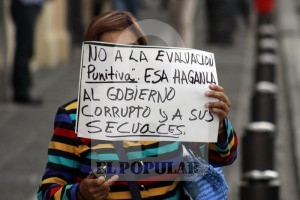 NO A LA EVALUACIÓN
"Punitiva". ESA HAGANLA
AL GOBIERNO
CORRUPTO Y A SUS
SECUACES.
EL POPULAR